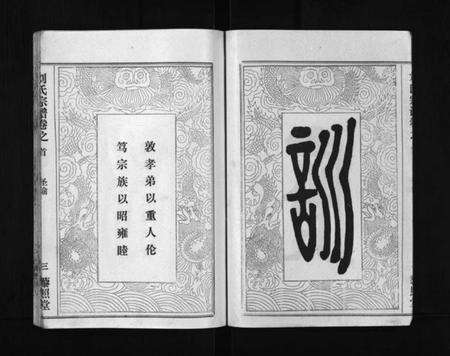 訓
敦孝弟以重人伦
笃宗族以昭雍睦
刘氏宗谱卷之
首
圣谕
三
藜照堂